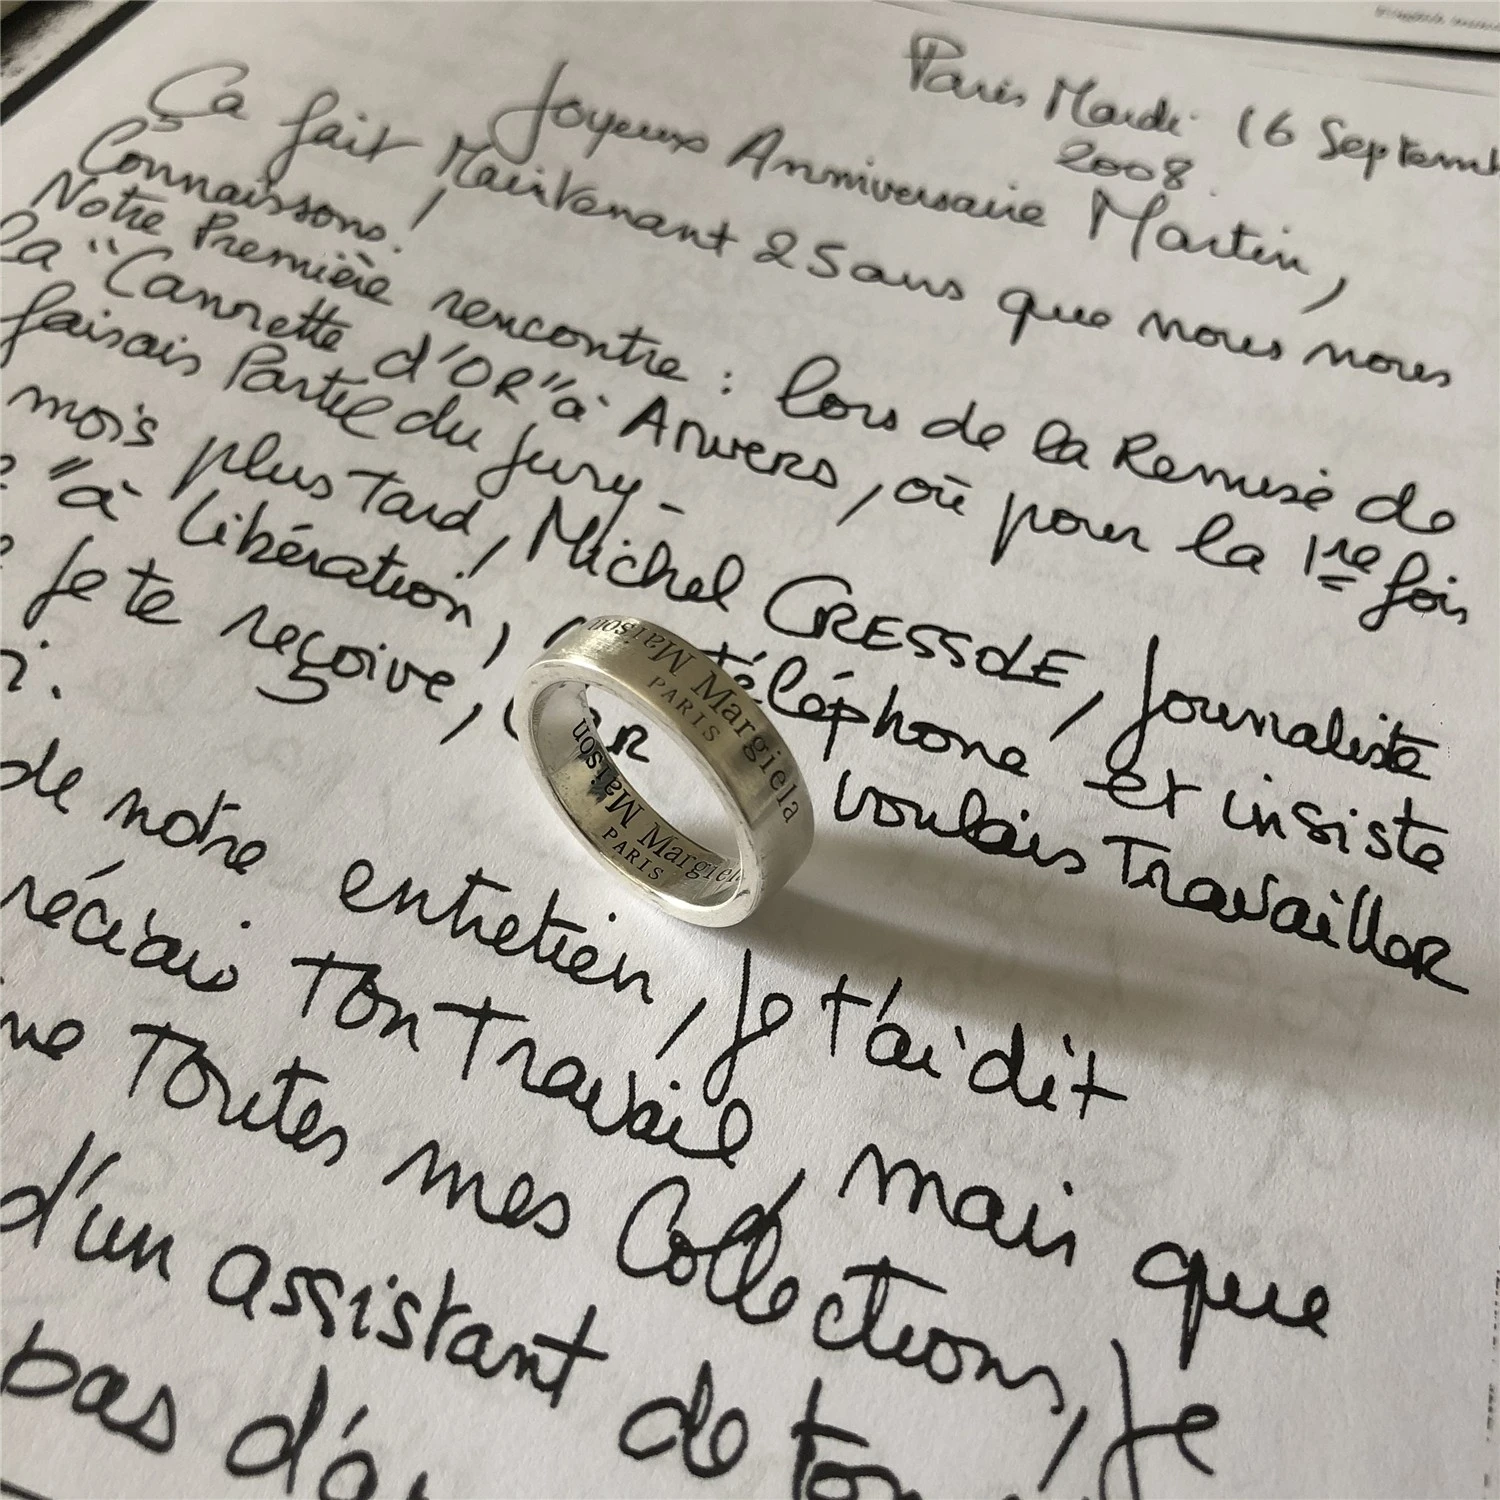 Paris Mardi 16 Septemb
2008.
Joyeux Anniversaire Martin,
Ça fait Maintenant 25 ans que nous nous
Connaissons !
Notre Première rencontre : lors de la Remise de
la "Cannette d'OR" à Anvers, où pour la 1re fois
faisais Partie du Jury -
mois plus tard, Michel CRESSOLE, Journaliste
" à Libération, téléphone et insiste
Je te reçoive, voulais Travailler
i.
de notre entretien, Je t'ai dit
réciais Ton Travail, mais que
Toutes mes Collections, Je
d'un assistant de ton
pas d'a
Maison Margiela
PARIS
Maison Margiela
PARIS